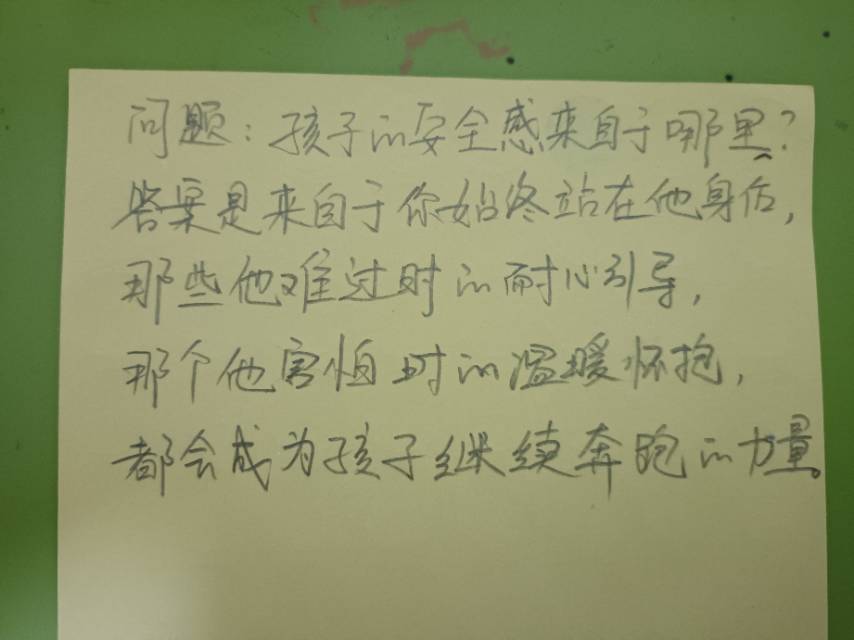 问题：孩子的安全感来自于哪里？
答案是来自于你始终站在他身后，
那些他难过时的耐心引导，
那个他害怕时的温暖怀抱，
都会成为孩子继续奔跑的力量。